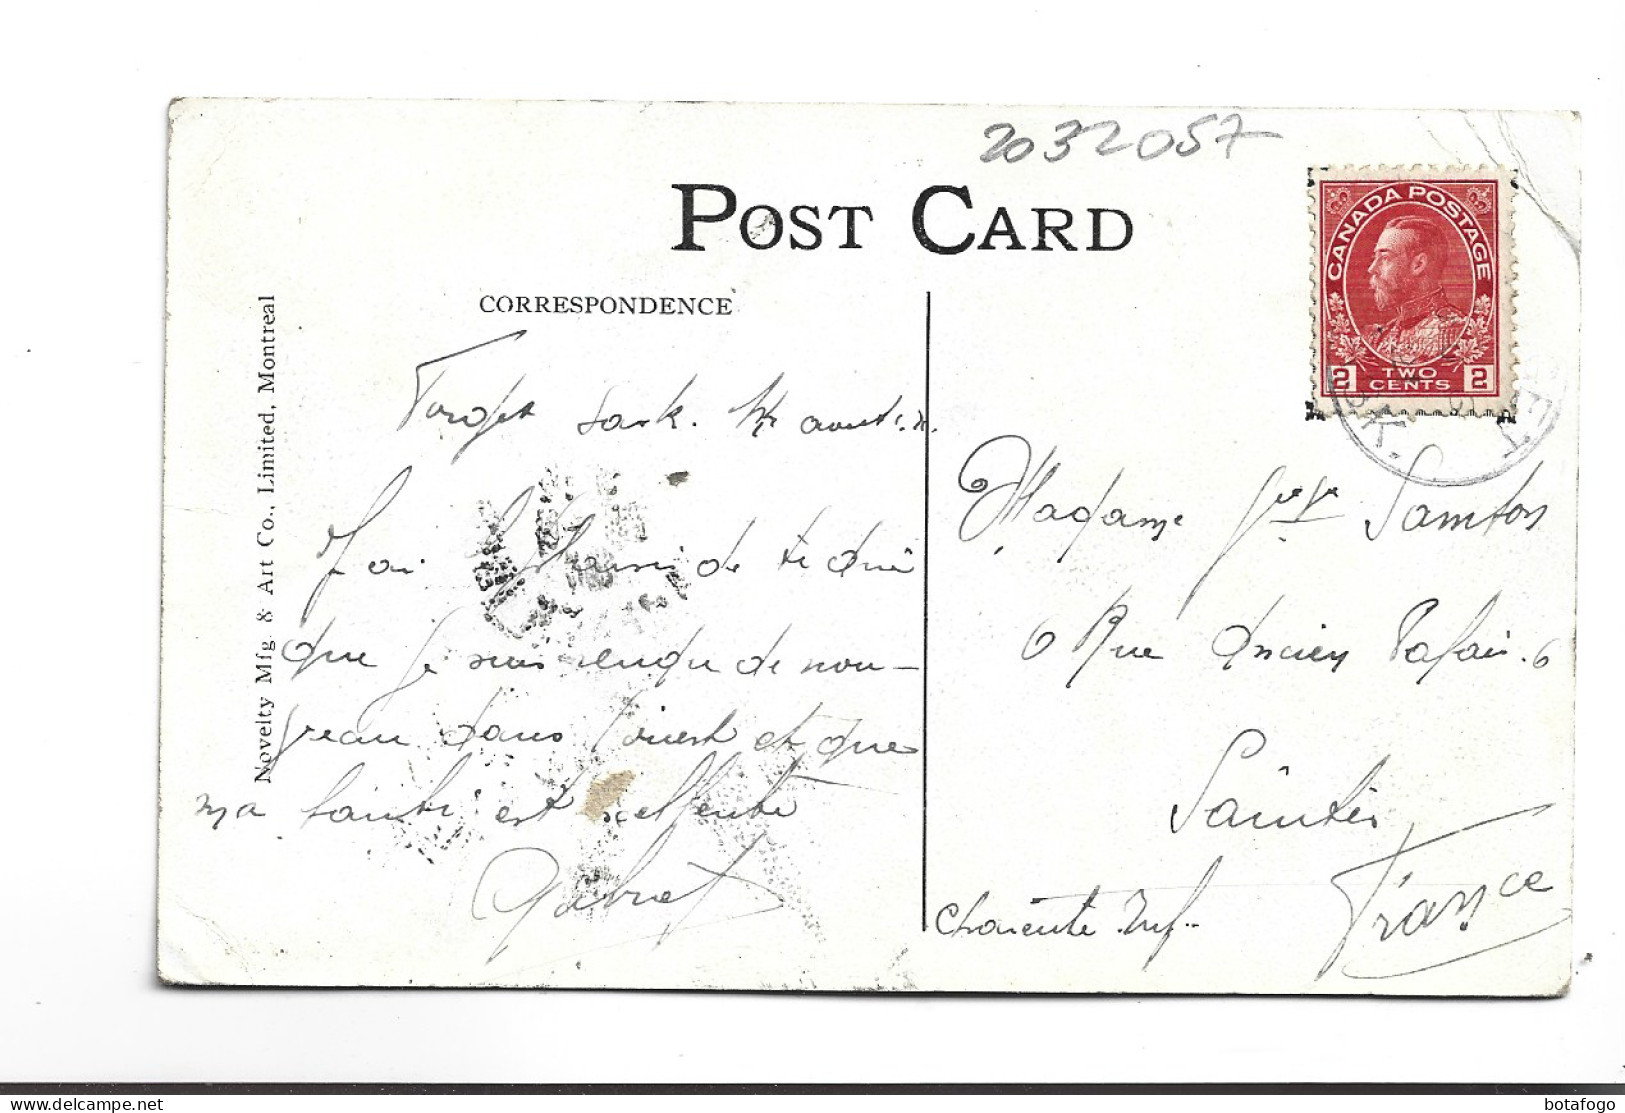 2032057
POST CARD
CANADA POSTAGE
2 TWO CENTS 2
CORRESPONDENCE
Novelty Mfg. & Art Co., Limited, Montreal
Forget Sask. août
J'ai de te
que je suis rendu de nou-
veau dans l'ouest et que
ma santé est excellente
Gabriel
Madame
6 Rue Ancien Palais. 6
Saintes
Charente Inf..
France
SASK.
delcampe.net
botafogo